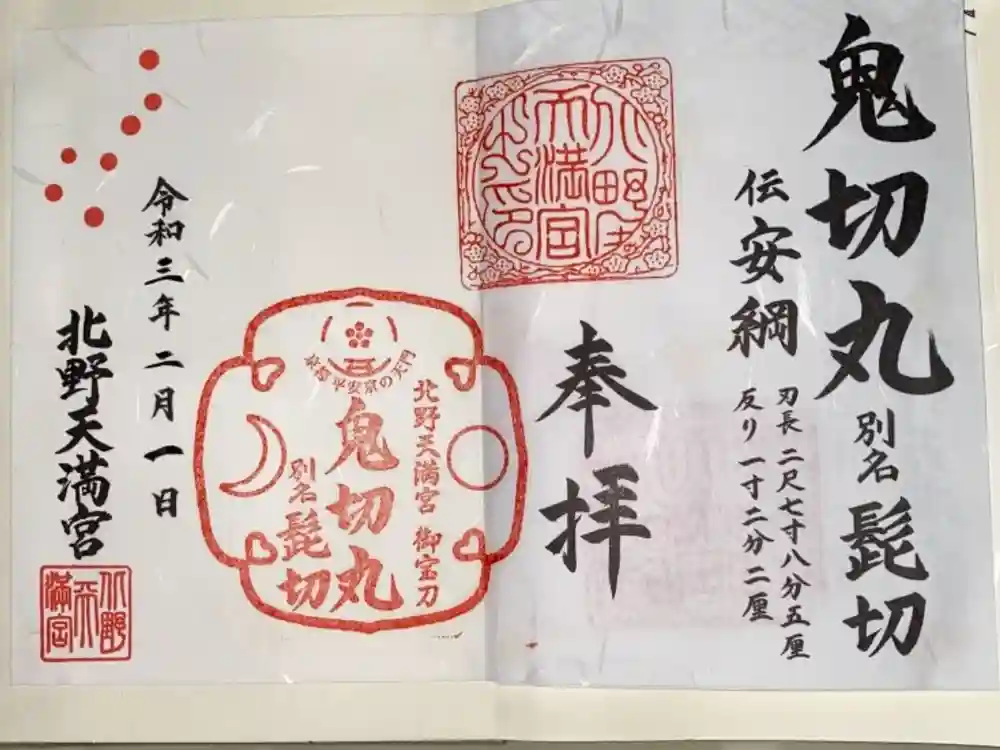 鬼切丸 別名 髭切
伝 安綱
刃長 二尺七寸八分五厘
反り 一寸二分二厘
奉拝
北野天満宮 御宝刀
京都 平安京の天門
鬼切丸
別名 髭切
令和三年 二月一日
北野天満宮
北野
天
満宮